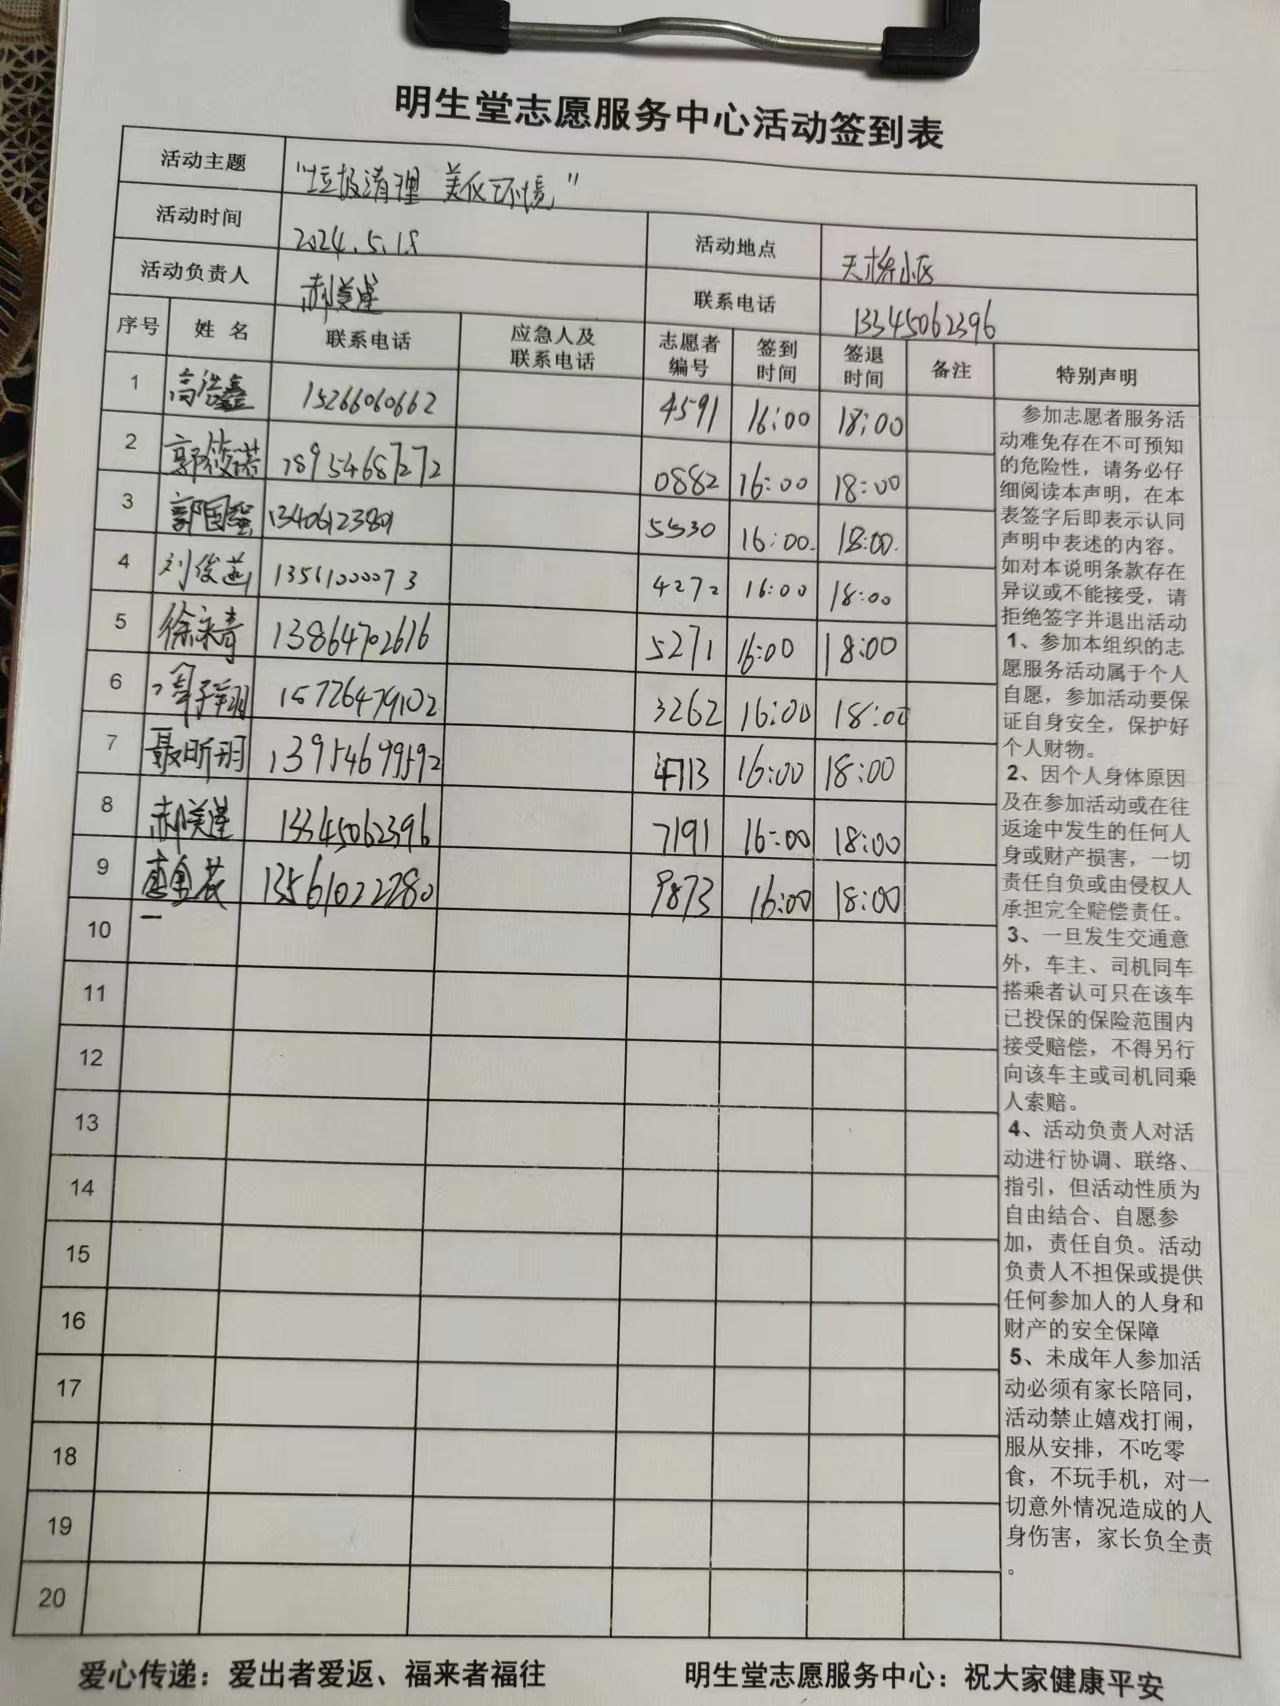 明生堂志愿服务中心活动签到表
活动主题 "垃圾清理 美化环境"
活动时间 2024.5.18 活动地点 天桥小区
活动负责人 郝美瑾 联系电话 13345062396
序号 姓名 联系电话 应急人及联系电话 志愿者编号 签到时间 签退时间 备注 特别声明
1 高浩鑫 15266060662 4591 16:00 18:00
2 郭筱诺 18954687272 0882 16:00 18:00
3 郭国强 13406123801 5530 16:00. 18:00.
4 刘俊函 13561000073 4272 16:00 18:00
5 徐永青 13864702616 5271 16:00 18:00
6 子翔 15726479102 3262 16:00 18:00
7 聂昕玥 13954699592 4713 16:00 18:00
8 郝美瑾 13345062396 7191 16:00 18:00
9 13561022280 9873 16:00 18:00
10
11
12
13
14
15
16
17
18
19
20
参加志愿者服务活
动难免存在不可预知
的危险性，请务必仔
细阅读本声明，在本
表签字后即表示认同
声明中表述的内容。
如对本说明条款存在
异议或不能接受，请
拒绝签字并退出活动
1、参加本组织的志
愿服务活动属于个人
自愿，参加活动要保
证自身安全，保护好
个人财物。
2、因个人身体原因
及在参加活动或在往
返途中发生的任何人
身或财产损害，一切
责任自负或由侵权人
承担完全赔偿责任。
3、一旦发生交通意
外，车主、司机同车
搭乘者认可只在该车
已投保的保险范围内
接受赔偿，不得另行
向该车主或司机同乘
人索赔。
4、活动负责人对活
动进行协调、联络、
指引，但活动性质为
自由结合、自愿参
加，责任自负。活动
负责人不担保或提供
任何参加人的人身和
财产的安全保障
5、未成年人参加活
动必须有家长陪同，
活动禁止嬉戏打闹，
服从安排，不吃零
食，不玩手机，对一
切意外情况造成的人
身伤害，家长负全责
。
爱心传递：爱出者爱返、福来者福往 明生堂志愿服务中心：祝大家健康平安